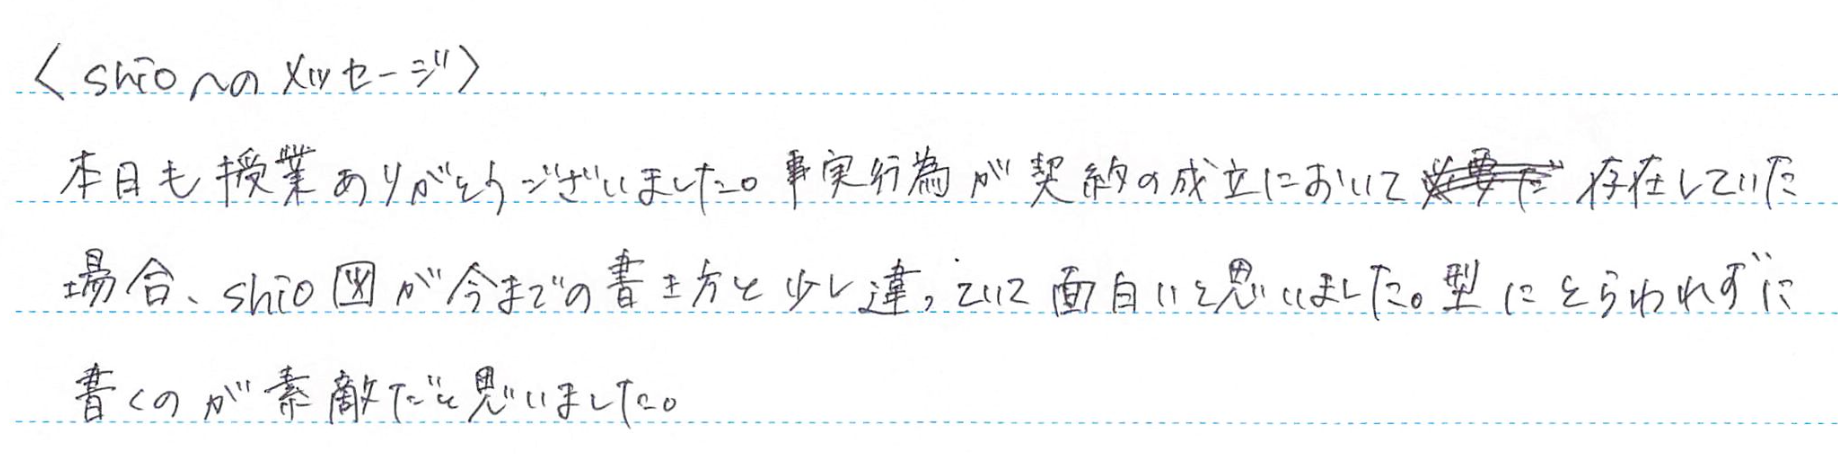 〈shioへのメッセージ〉
本日も授業ありがとうございました。事実行為が契約の成立において存在していた
場合、shio図が今までの書き方と少し違っていて面白いと思いました。型にとらわれずに
書くのが素敵だと思いました。